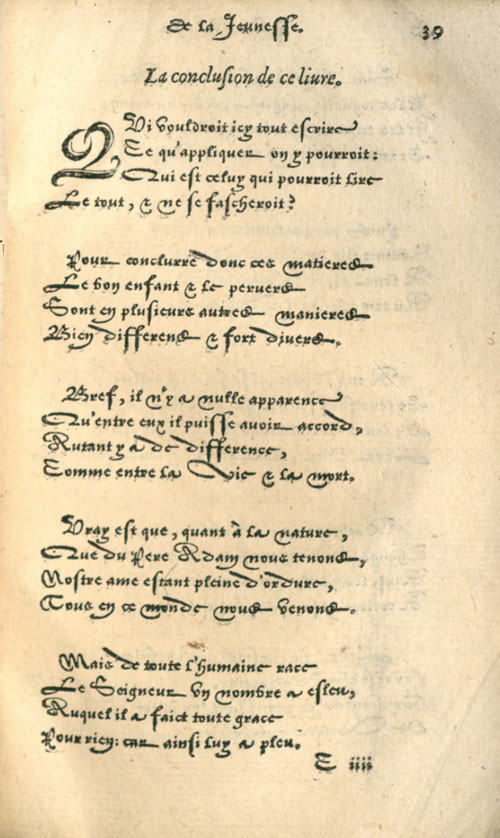 de la Jeunesse.
39
La conclusion de ce liure.
QVi vouldroit icy tout escrire
Ce qu'appliquer on y pourroit:
Qui est celuy qui pourroit lire
Le tout, & ne se fascheroit?
Pour conclurre donc ces matieres
Le bon enfant & le pervers
Sont en plusieurs autres manieres
Bien differens & fort divers.
Bref, il n'y a nulle apparence
Qu'entre eux il puisse avoir accord,
Autant y a de difference,
Comme entre la vie & la mort.
Vray est que, quant à la nature,
Que du Pere Adam nous tenons,
Nostre ame estant pleine d'ordure,
Tous en ce monde nous venons.
Mais de toute l'humaine race
Le Seigneur vn nombre a esleu,
Auquel il a faict toute grace
Pour rien: car ainsi luy a pleu.
E iiii